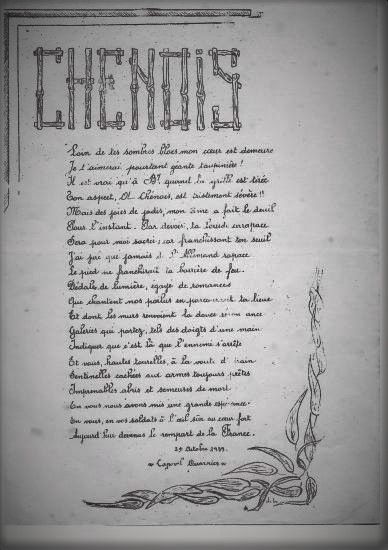 CHENOIS
Loin de tes sombres blocs mon cœur est demeuré
Je t'aimerai pourtant géante taupinière !
Il est vrai qu'à la griffe est tirée
Ton aspect, Ô Chenois, est tristement sévère !!
Mais des joies de jadis, mon âme a fait le deuil
Pour l'instant. Par devoir, ta lourde carapace
Sera pour moi sacrée : car franchissant ton seuil
J'ai juré que jamais l'Allemand rapace
Le pied ne franchirait la barrière de feu.
Dédale de lumière, égayé de romances
Que chantent nos poilus en parcourant ta lieue
Et dont les murs renvoient la douce
Galeries qui partez, tels des doigts d'une main
Indiquer que c'est là que l'ennemi s'arrête
Et vous, hautes tourelles, à la voûte d'airain
Sentinelles cachées aux armes toujours prêtes
Imprenables abris et semeuses de mort.
En vous nous avons mis une grande espérance
En vous, en vos soldats à l'œil sûr au cœur fort
Aujourd'hui devenus le rempart de la France.
29 Octobre 1939.
« Caporal »